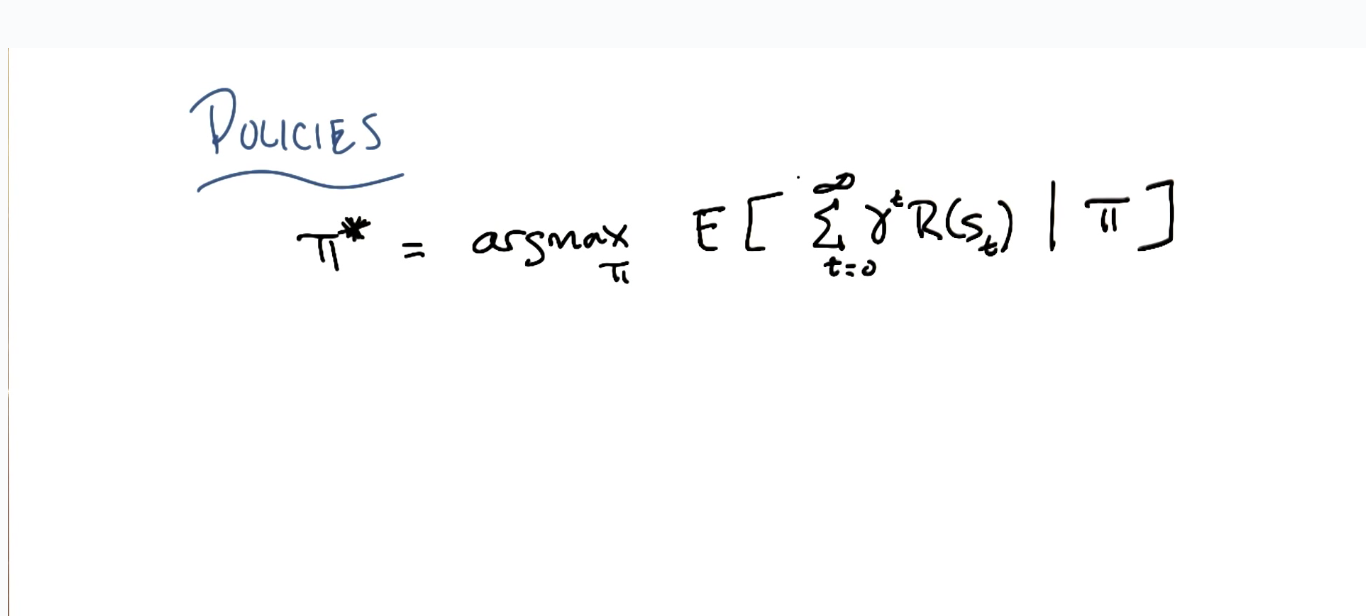 POLICIES
π* = argmax_π E[ ∑_{t=0}^{∞} γ^t R(s_t) | π ]